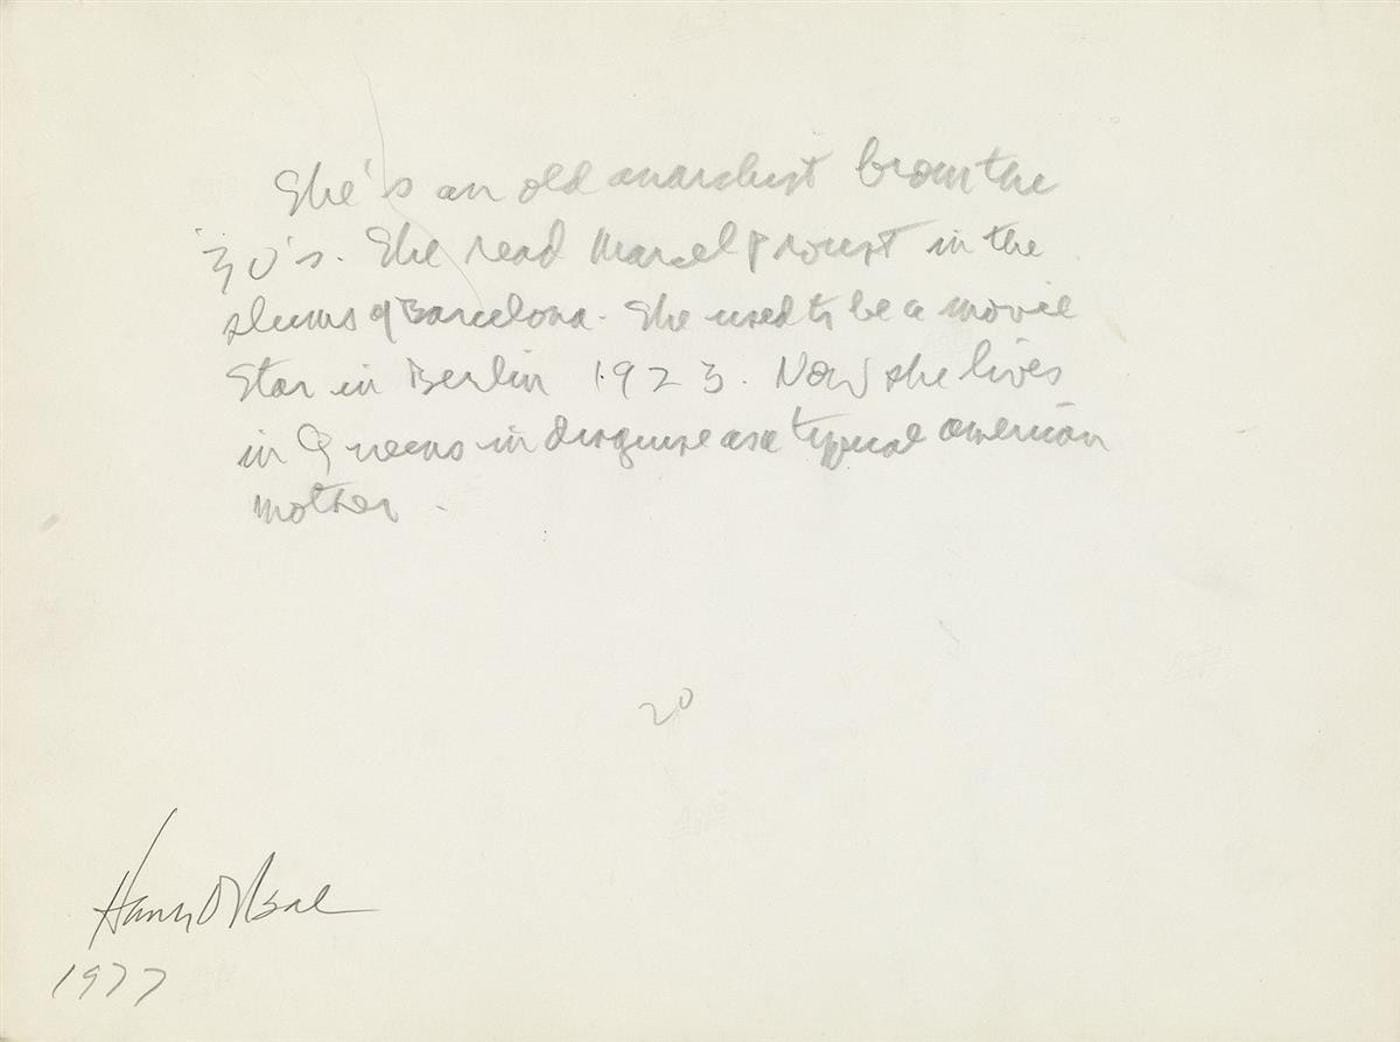 She's an old anarchist from the
'30's. She read Marcel Proust in the
slums of Barcelona. She used to be a movie
Star in Berlin 1923. Now she lives
in Queens in disguise as a typical american
mother.
20
1977